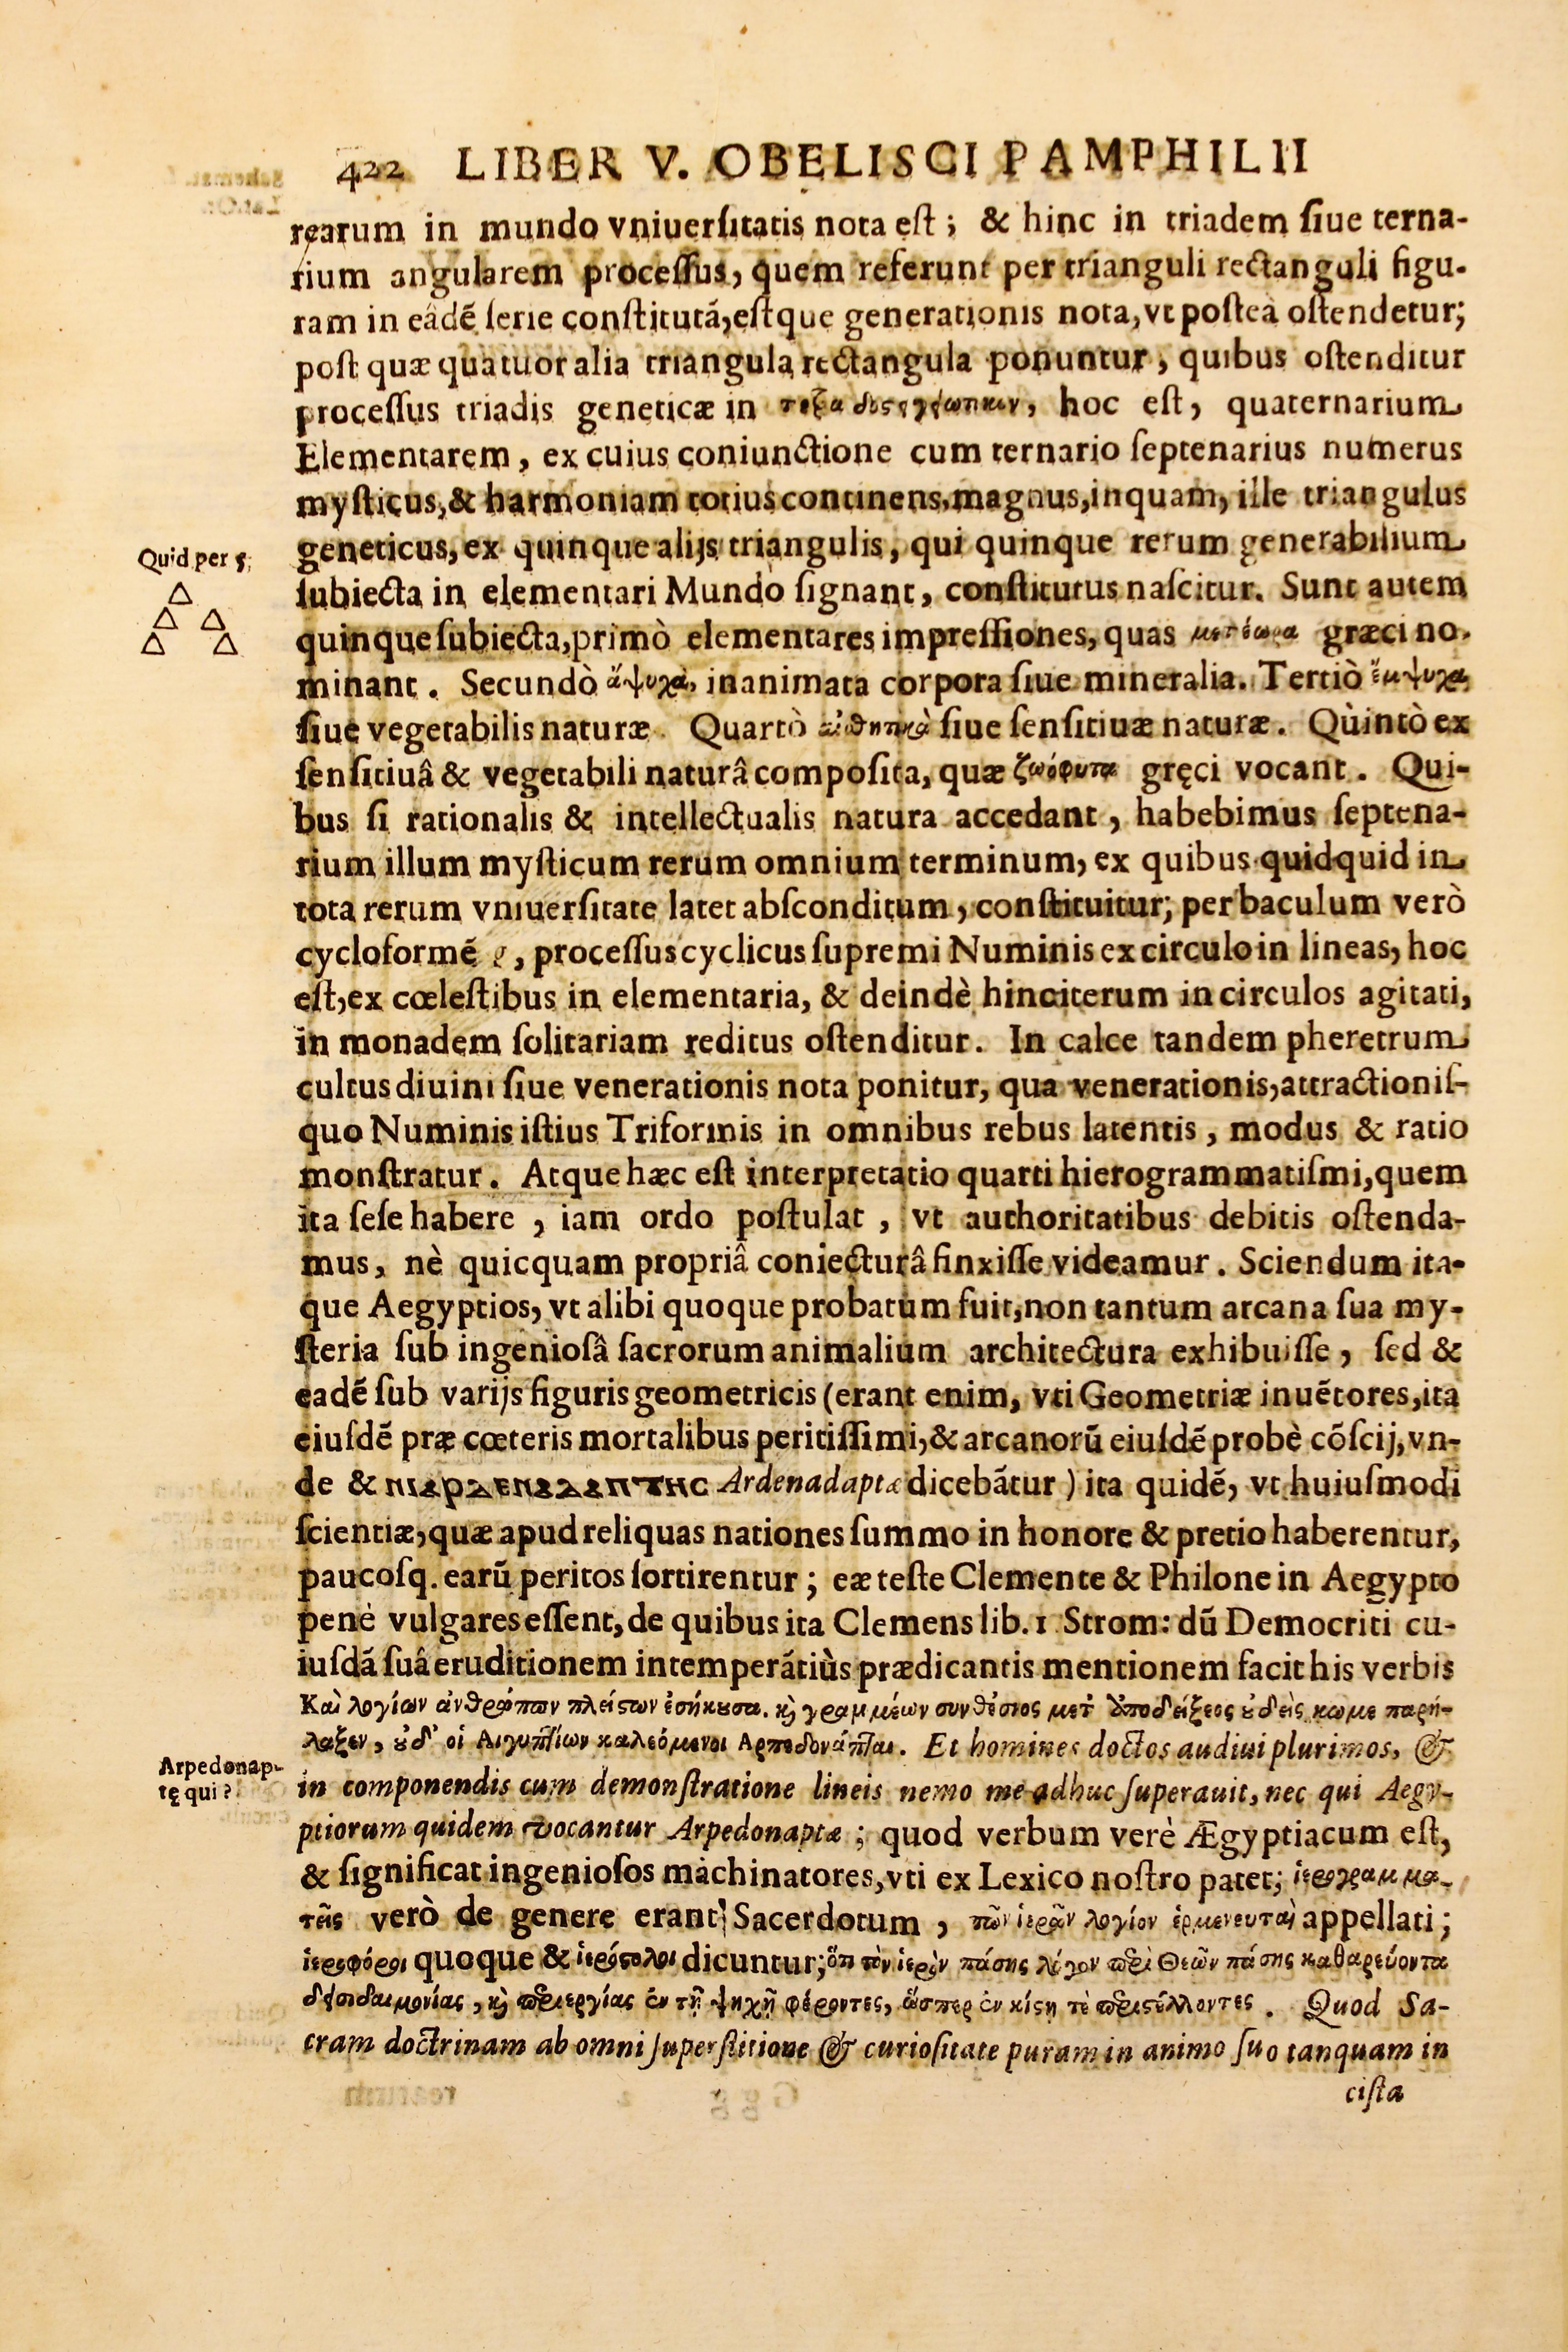 422 LIBER V. OBELISCI PAMPHILII
rearum in mundo vniuersitatis nota est; & hinc in triadem siue terna-
rium angularem processus, quem referunt per trianguli rectanguli figu-
ram in eâdẽ serie constitutã, estque generationis nota, vt postea ostendetur;
post quæ quatuor alia triangula rectangula ponuntur, quibus ostenditur
processus triadis geneticæ in hoc est, quaternarium
Elementarem, ex cuius coniunctione cum ternario septenarius numerus
mysticus, & harmoniam totius continens, magnus, inquam, ille triangulus
Quid per 5;
geneticus, ex quinque alijs triangulis, qui quinque rerum generabilium
subiecta in elementari Mundo signant, constitutus nascitur. Sunt autem
quinque subiecta, primò elementares impressiones, quas μετέωρα græci no-
minant. Secundò ἄψυχὰ, inanimata corpora siue mineralia. Tertiò ἔμψυχα
siue vegetabilis naturæ. Quartò αἰσθητικὰ siue sensitiuæ naturæ. Qùintò ex
sensitiuâ & vegetabili naturâ composita, quæ ζωόφυτα gręci vocant. Qui-
bus si rationalis & intellectualis natura accedant, habebimus septena-
rium illum mysticum rerum omnium terminum, ex quibus quidquid in
tota rerum vniuersitate latet absconditum, constituitur; per baculum verò
cycloformẽ , processus cyclicus supremi Numinis ex circulo in lineas, hoc
est, ex cœlestibus in elementaria, & deindè hinc iterum in circulos agitati,
in monadem solitariam reditus ostenditur. In calce tandem pheretrum
cultus diuini siue venerationis nota ponitur, qua venerationis, attractionis-
quo Numinis istius Triformis in omnibus rebus latentis, modus & ratio
monstratur. Atque hæc est interpretatio quarti hierogrammatismi, quem
ita sese habere, iam ordo postulat, vt authoritatibus debitis ostenda-
mus, nè quicquam propriâ coniecturâ finxisse videamur. Sciendum ita-
que Aegyptios, vt alibi quoque probatum fuit, non tantum arcana sua my-
steria sub ingeniosâ sacrorum animalium architectura exhibuisse, sed &
eadẽ sub varijs figuris geometricis (erant enim, vti Geometriæ inuẽtores, ita
eiusdẽ præ cœteris mortalibus peritissimi, & arcanorũ eiusdẽ probè cõscij, vn-
de & ⲡⲓⲁⲣⲇⲉⲛⲁⲇⲁⲡⲧⲏⲥ Ardenadaptæ dicebãtur) ita quidẽ, vt huiusmodi
scientiæ, quæ apud reliquas nationes summo in honore & pretio haberentur,
paucosq. earũ peritos sortirentur; eæ teste Clemente & Philone in Aegypto
penè vulgares essent, de quibus ita Clemens lib. 1 Strom: dũ Democriti cu-
iusdã suâ eruditionem intemperãtiùs prædicantis mentionem facit his verbis
Καὶ λογίων ἀνθρώπων πλείστων ἐσήκουσα. καὶ γραμμέων συνθέσιος μετ' ἀποδείξεος οὐδεὶς κωμε παρή-
λαξεν, οὐδ' οἱ Αιγυπτίων καλεόμενοι Αρπεδονάπται. Et homines doctos audiui plurimos, &
Arpedonap-
tę qui?
in componendis cum demonstratione lineis nemo me adhuc superauit, nec qui Aegy-
ptiorum quidem vocantur Arpedonaptæ; quod verbum verè Ægyptiacum est,
& significat ingeniosos machinatores, vti ex Lexico nostro patet; ἱερογραμμα-
τεῖς verò de genere erant Sacerdotum, τῶν ἱερῶν λογίον ἑρμενευταὶ appellati;
ἱεροφόροι quoque & ἱερόστολοι dicuntur; ὅτι τὸν ἱερὸν πάσης λόγον περὶ Θεῶν πάσης καθαρεύοντα
δεισιδαιμονίας, καὶ περιεργίας ἐν τῇ ψηχῇ φέροντες, ὥσπερ ἐν κίςῃ τὲ περιστέλλοντες. Quod Sa-
cram doctrinam ab omni superstitione & curiositate puram in animo suo tanquam in
cista